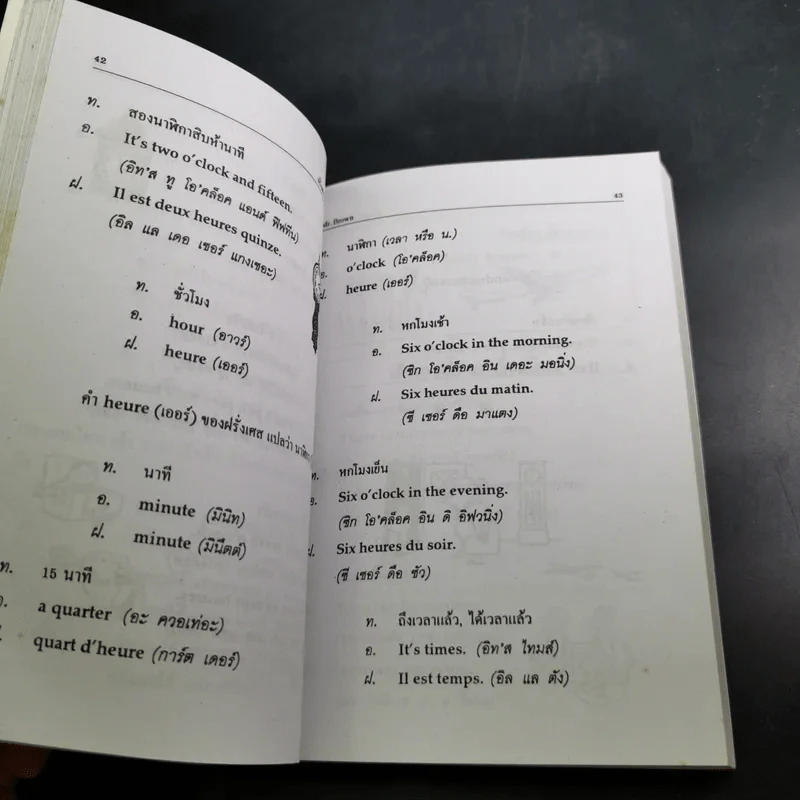 42
ท. สองนาฬิกาสิบห้านาที
อ. It's two o'clock and fifteen.
(อิท'ส ทู โอ'คล็อค แอนด์ ฟิฟทีน)
ฝ. Il est deux heures quinze.
(อิล แล เดอ เซอร์ แกงเซอะ)
ท. ชั่วโมง
อ. hour (อาวร์)
ฝ. heure (เออร์)
คำ heure (เออร์) ของฝรั่งเศส แปลว่า
ท. นาที
อ. minute (มินิท)
ฝ. minute (มินึตต์)
ท. 15 นาที
a quarter (อะ ควอเท่อะ)
quart d'heure (การ์ต เดอร์)
Brown
43
ท. นาฬิกา (เวลา หรือ น.)
อ. o'clock (โอ'คล็อค)
ฝ. heure (เออร์)
ท. หกโมงเช้า
อ. Six o'clock in the morning.
(ซิก โอ'คล็อค อิน เดอะ มอนิ่ง)
ฝ. Six heures du matin.
(ซี เซอร์ ดือ มาแตง)
ท. หกโมงเย็น
อ. Six o'clock in the evening.
(ซิก โอ'คล็อค อิน ดิ อิฟวนิ่ง)
ฝ. Six heures du soir.
(ซี เซอร์ ดือ ซัว)
ท. ถึงเวลาแล้ว, ได้เวลาแล้ว
อ. It's times. (อิท'ส ไทมส์)
ฝ. Il est temps. (อิล แล ตัง)